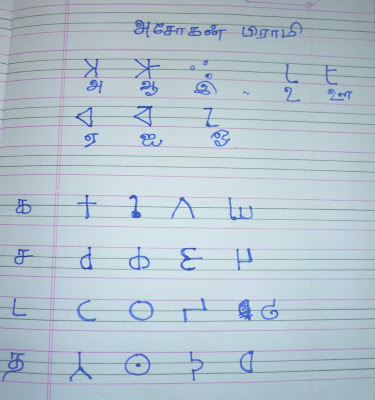 அசோகன் பிராமி
𑀅 𑀆 𑀇 𑀉 𑀊
அ ஆ இ .. உ ஊ
𑀏 𑀐 𑀑
ஏ ஐ ஓ
க 𑀓 𑀔 𑀕 𑀖
ச 𑀘 𑀙 𑀚 𑀛
ட 𑀝 𑀞 𑀟 𑀠
த 𑀢 𑀣 𑀤 𑀥